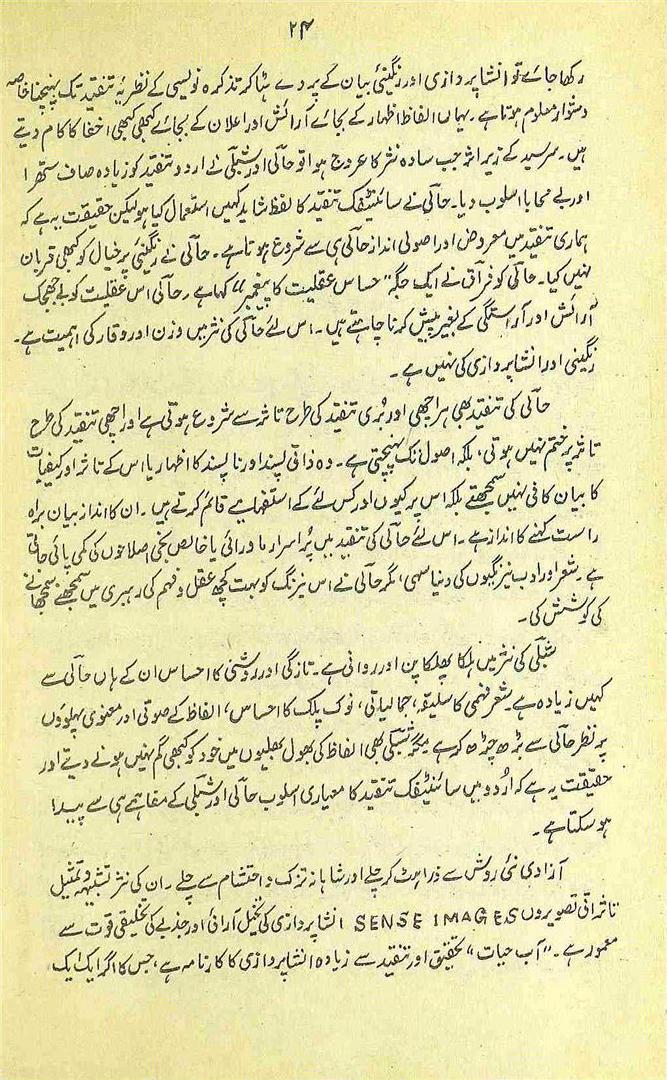 ۲۴
رکھا جائے تو انشا پردازی اور رنگینئ بیان کے پردے ہٹا کر تذکرہ نویسی کے نظریۂ تنقید تک پہنچنا خاصہ
دشوار معلوم ہوتا ہے۔ یہاں الفاظ اظہار کے بجائے آرائش اور اعلان کے بجائے کبھی کبھی اخفا کا کام دیتے
ہیں۔ سرسید کے زیر اثر جب سادہ نثر کا عروج ہوا تو حالی اور شبلی نے اردو تنقید کو زیادہ صاف ستھرا
اور بے محابا اسلوب دیا۔ حالی نے سائنٹیفک تنقید کا لفظ شاید کہیں استعمال کیا ہو لیکن حقیقت یہ ہے کہ
ہماری تنقید میں معروضی اور اصولی انداز حالی ہی سے شروع ہوتا ہے۔ حالی نے رنگینی پر خیال کو کبھی قربان
نہیں کیا۔ حالی کو فراق نے ایک جگہ "حساس عقلیت کا پیغمبر" کہا ہے۔ حالی اس عقلیت کو بے جھجک
آرائش اور آراستگی کے بغیر پیش کرنا چاہتے ہیں۔ اس لئے حالی کی نثر میں وزن اور وقار کی اہمیت ہے۔
رنگینی اور انشا پردازی کی نہیں ہے۔
حالی کی تنقید بھی ہر اچھی اور بُری تنقید کی طرح تاثر سے شروع ہوتی ہے اور اچھی تنقید کی طرح
تاثر پر ختم نہیں ہوتی، بلکہ اصول تک پہنچتی ہے۔ وہ ذاتی پسند اور ناپسند کا اظہار یا اس کے تاثر اور کیفیات
کا بیان کافی نہیں سمجھتے بلکہ اس پر کیوں اور کس لئے کے استفہامیے قائم کرتے ہیں۔ ان کا انداز بیان براہ
راست کہنے کا انداز ہے۔ اس لئے حالی کی تنقید میں پُر اسرار ماورائی یا خالص نجی اصلاحوں کی کمی پائی جاتی
ہے۔ شعر اور ادب نیرنگیوں کی دنیا سہی، مگر حالی نے اس نیرنگ کو بہت کچھ عقل و فہم کی رہبری میں سمجھنے سمجھانے
کی کوشش کی۔
شبلی کی نثر میں ہلکا پھلکا پن اور روانی ہے۔ تازگی اور روشنی کا احساس ان کے ہاں حالی سے
کہیں زیادہ ہے۔ شعر فہمی کا سلیقہ، جمالیاتی، نوک پلک کا احساس، الفاظ کے صوتی اور معنوی پہلوؤں
پر نظر حالی سے بڑھ چڑھ کر ہے مگر شبلی بھی الفاظ کی بھول بھلیوں میں خود کو کبھی گم نہیں ہونے دیتے اور
حقیقت یہ ہے کہ اُردو میں سائنٹیفک تنقید کا معیاری اسلوب حالی اور شبلی کے مفاہمے ہی سے پیدا
ہو سکتا ہے۔
آزاد نئی روش سے ذرا ہٹ کر چلے اور شاہانہ تزک و احتشام سے چلے۔ ان کی نثر تشبیہہ و تمثیل
تاثراتی تصویروں SENSE IMAGES انشا پردازی کی تخیل آرائی اور جذبے کی تخلیقی قوت سے
معمور ہے۔ "آب حیات" تحقیق اور تنقید سے زیادہ انشا پردازی کا کارنامہ ہے، جس کا اگر ایک ایک